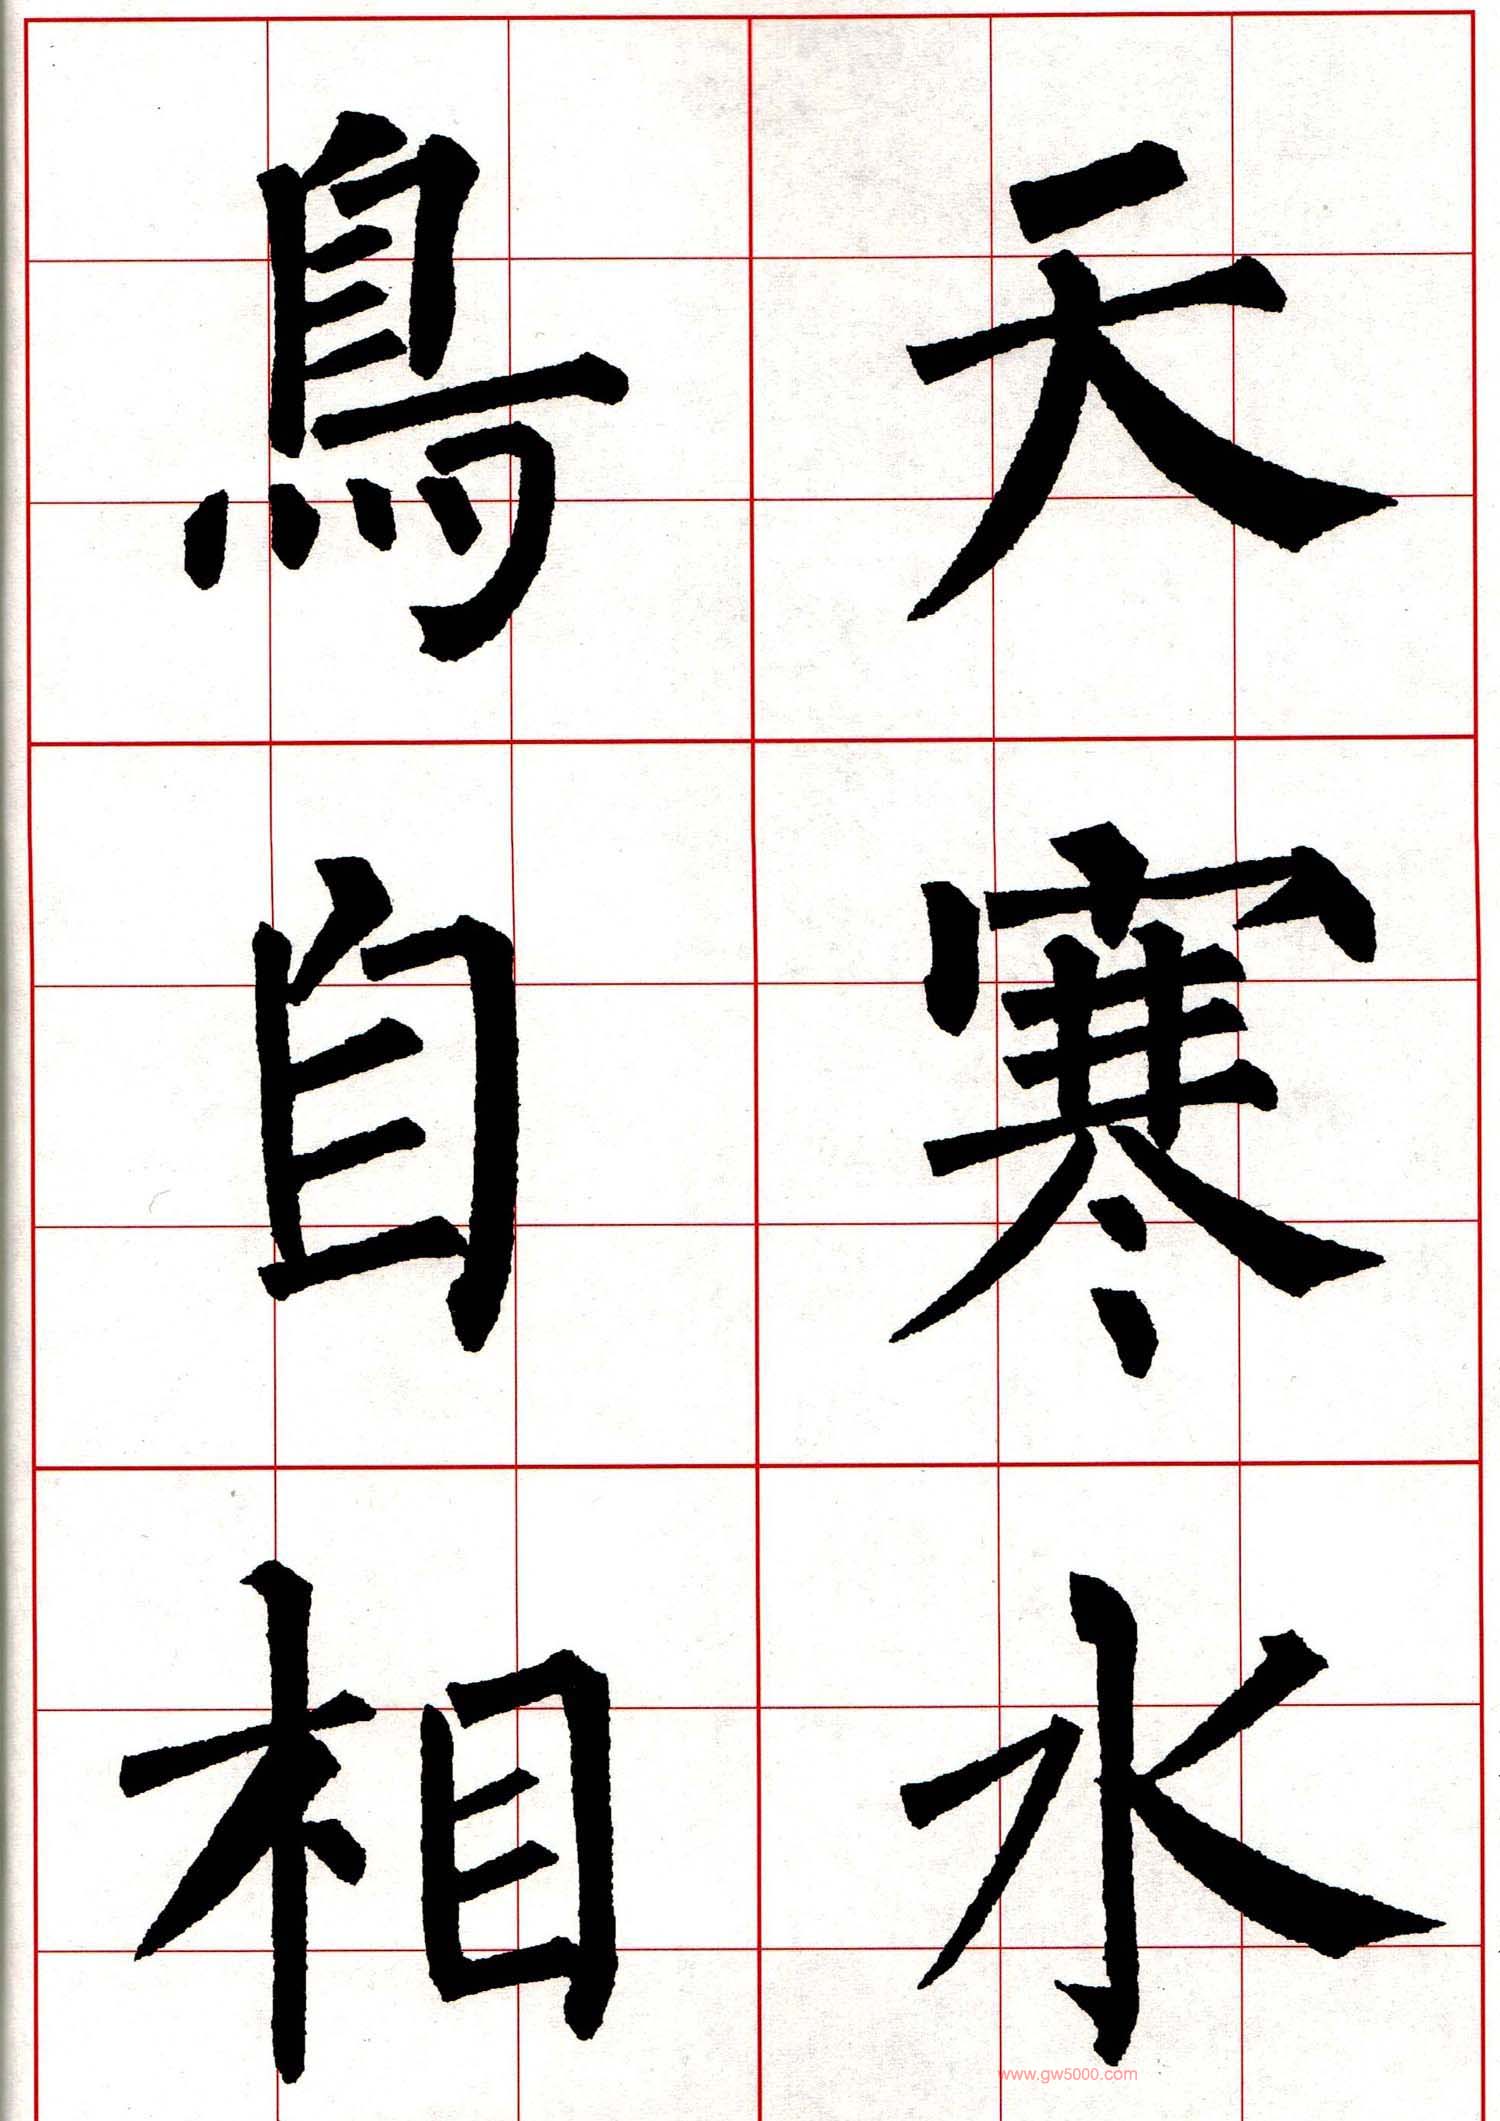 天寒水
鳥自相
www.gw5000.com